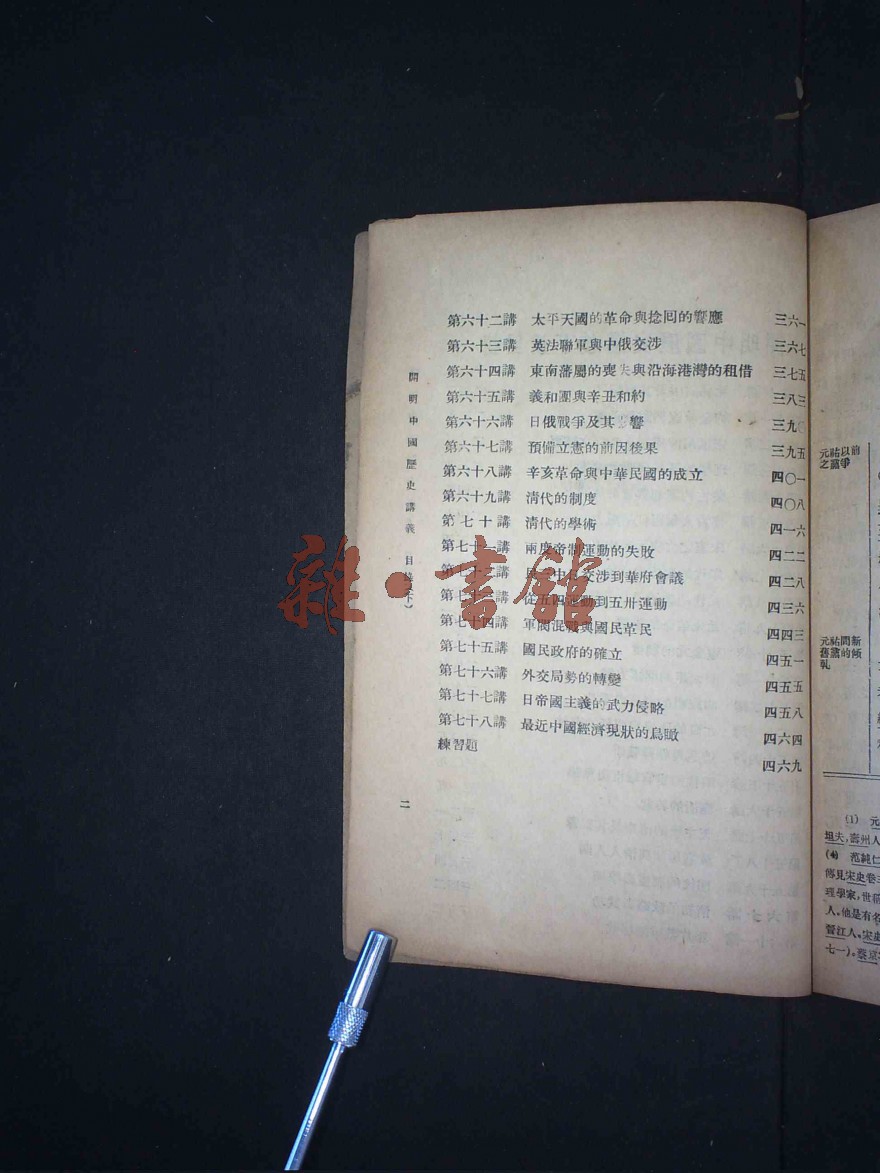 第六十二講 太平天國的革命與捻回的響應 三六一
第六十三講 英法聯軍與中俄交涉 三六七
第六十四講 東南藩屬的喪失與沿海港灣的租借 三七五
第六十五講 義和團與辛丑和約 三八三
第六十六講 日俄戰爭及其影響 三九〇
第六十七講 預備立憲的前因後果 三九五
第六十八講 辛亥革命與中華民國的成立 四〇一
第六十九講 清代的制度 四〇八
第七十講 清代的學術 四一六
第七十一講 兩度帝制運動的失敗 四二二
第七十二講 交涉到華府會議 四二八
第七十三講 從五四運動到五卅運動 四三六
第七十四講 軍閥混戰與國民革民 四四三
第七十五講 國民政府的確立 四五一
第七十六講 外交局勢的轉變 四五五
第七十七講 日帝國主義的武力侵略 四五八
第七十八講 最近中國經濟現狀的鳥瞰 四六四
練習題 四六九
開明中國歷史講義 目錄(下)
二
雜·書館
元祐以前
之黨爭
元祐間新
舊黨的傾
軋
(1) 元
坦夫,壽州人
(4) 范純仁
傳見宋史卷三
理學家,世稱
人。他是有名
晉江人。宋史
七一)。蔡京